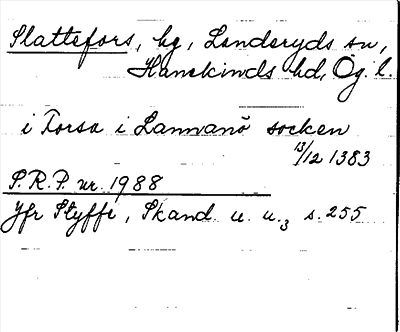 Slattefors, hg, Landeryds sn,
Hanekinds hd, Ög. l.
i Torsa i Lannanö socken
13/12 1383
S.R.P. nr. 1988
Jfr Styffe, Skand. u. u.3 s. 255